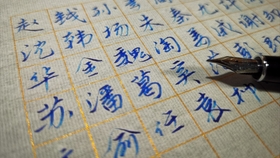 赵钱孙
沈韩杨朱秦尤许
华金魏陶姜戚谢
苏潘葛奚
俞任袁柳